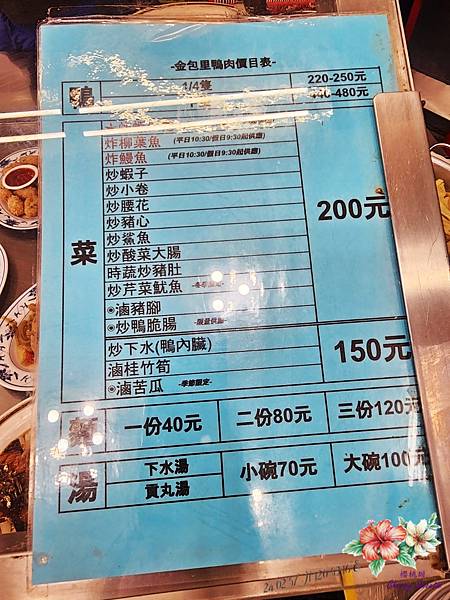 -金包里鴨肉價目表-
鴨 1/4隻 220-250元
440-480元
菜
炸柳葉魚 (平日10:30/假日9:30起供應)
炸鰻魚 (平日10:30/假日9:30起供應)
炒蝦子
炒小卷
炒腰花
炒豬心
炒鯊魚
炒酸菜大腸
時蔬炒豬肚
炒芹菜魷魚 -冬季限定-
◉滷豬腳
◉炒鴨脆腸 -限量供應-
200元
炒下水(鴨內臟)
滷桂竹筍
◉滷苦瓜 -季節限定-
150元
麵 一份40元 二份80元 三份120元
湯 下水湯 貢丸湯 小碗70元 大碗100元
櫻桃樹